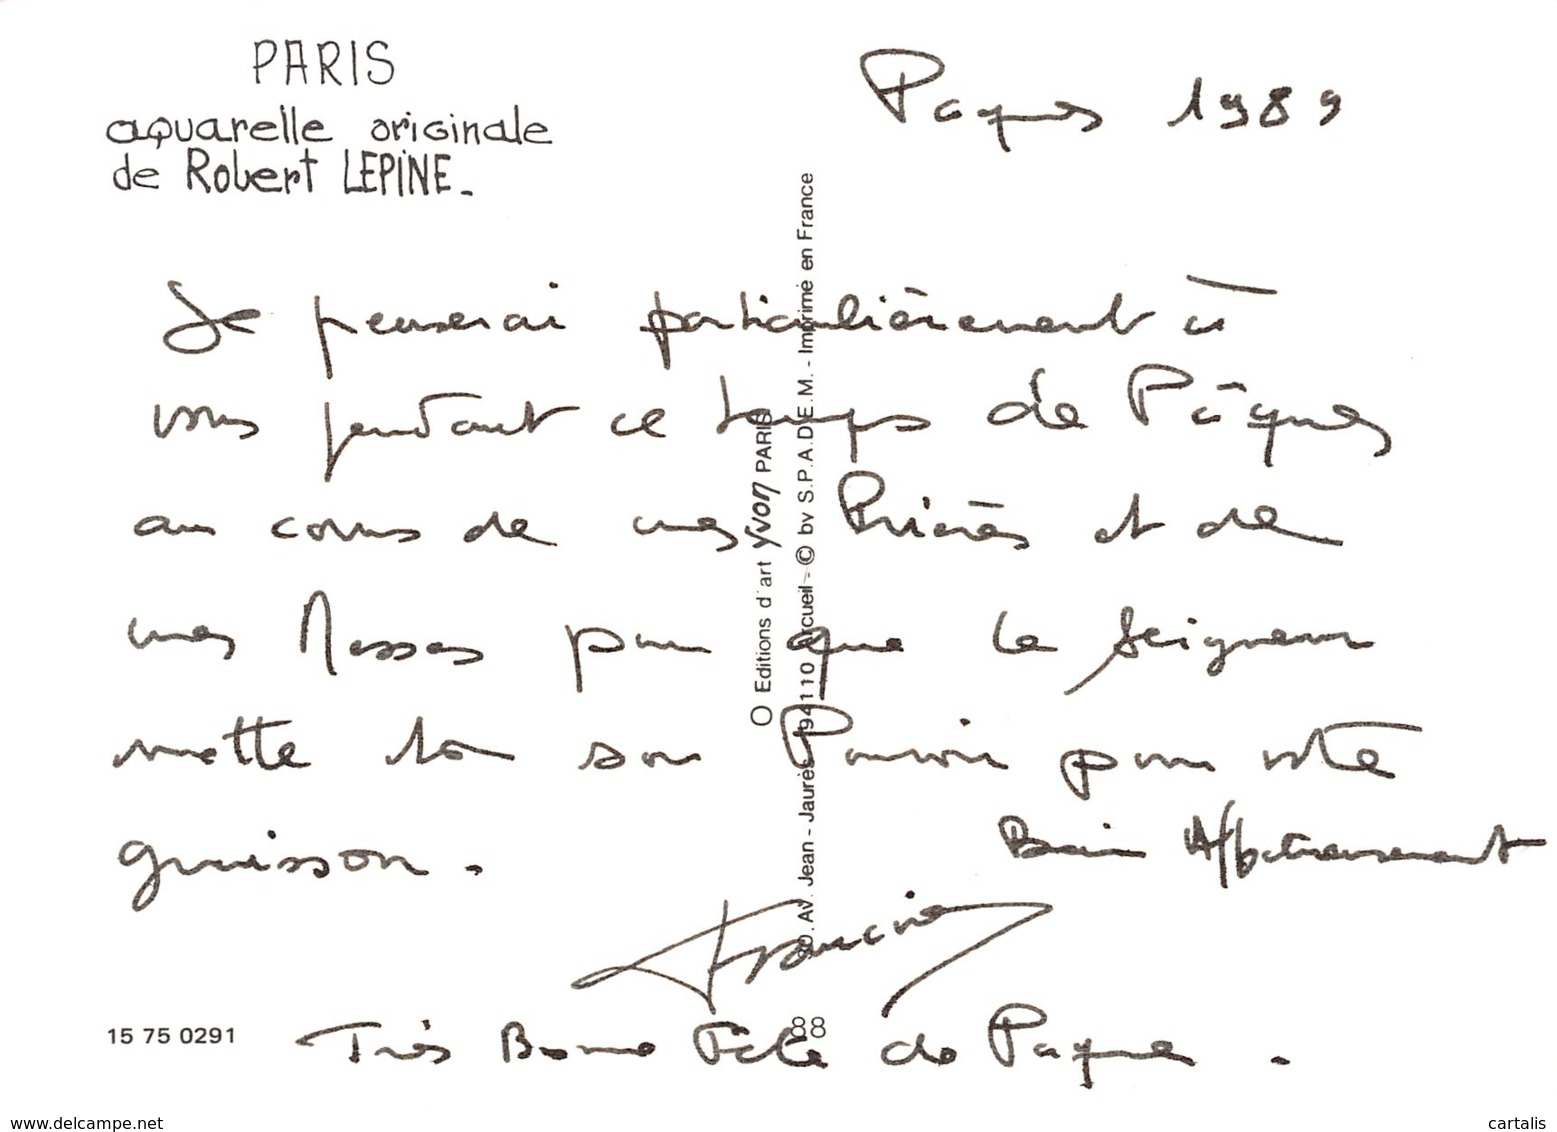 PARIS
aquarelle originale
de Robert LEPINE.
Paques 1989
Je penserai particulièrement à
vous pendant ce temps de Pâques
au cours de mes Prières et de
mes Messes pour que le Seigneur
mette tou son Pouvoir pour votre
guérisson.
Bien Affectueusement
Très Bonne Fête de Paque.
O Editions d'art yvon PARIS
Av. Jean-Jaurès 94110 Arcueil - © by S.P.A.D.E.M. - Imprimé en France
15 75 0291
88
www.delcampe.net
cartalis